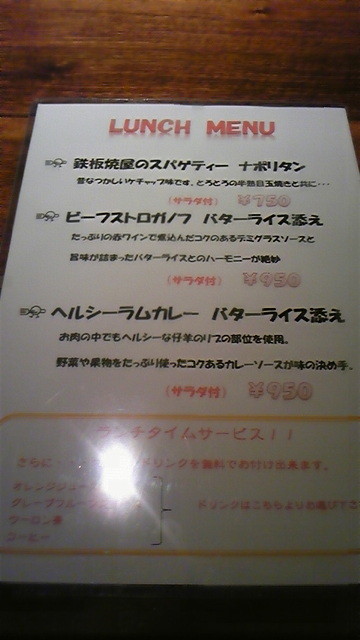 LUNCH MENU
鉄板焼屋のスパゲティー ナポリタン
昔なつかしいケチャップ味です。とろとろの半熟目玉焼きと共に・・・
(サラダ付) ¥750
ビーフストロガノフ バターライス添え
たっぷりの赤ワインで煮込んだコクのあるデミグラスソースと
旨味が詰まったバターライスとのハーモニーが絶妙
(サラダ付) ¥950
ヘルシーラムカレー バターライス添え
お肉の中でもヘルシーな仔羊のリブの部位を使用。
野菜や果物をたっぷり使ったコクあるカレーソースが味の決め手。
(サラダ付) ¥950
ランチタイムサービス!!
さらに・ リンクを無料でお付け出来ます。
オレンジジュー
グレープフルー ドリンクはこちらよりお選び下さ
ウーロン茶
コーヒー